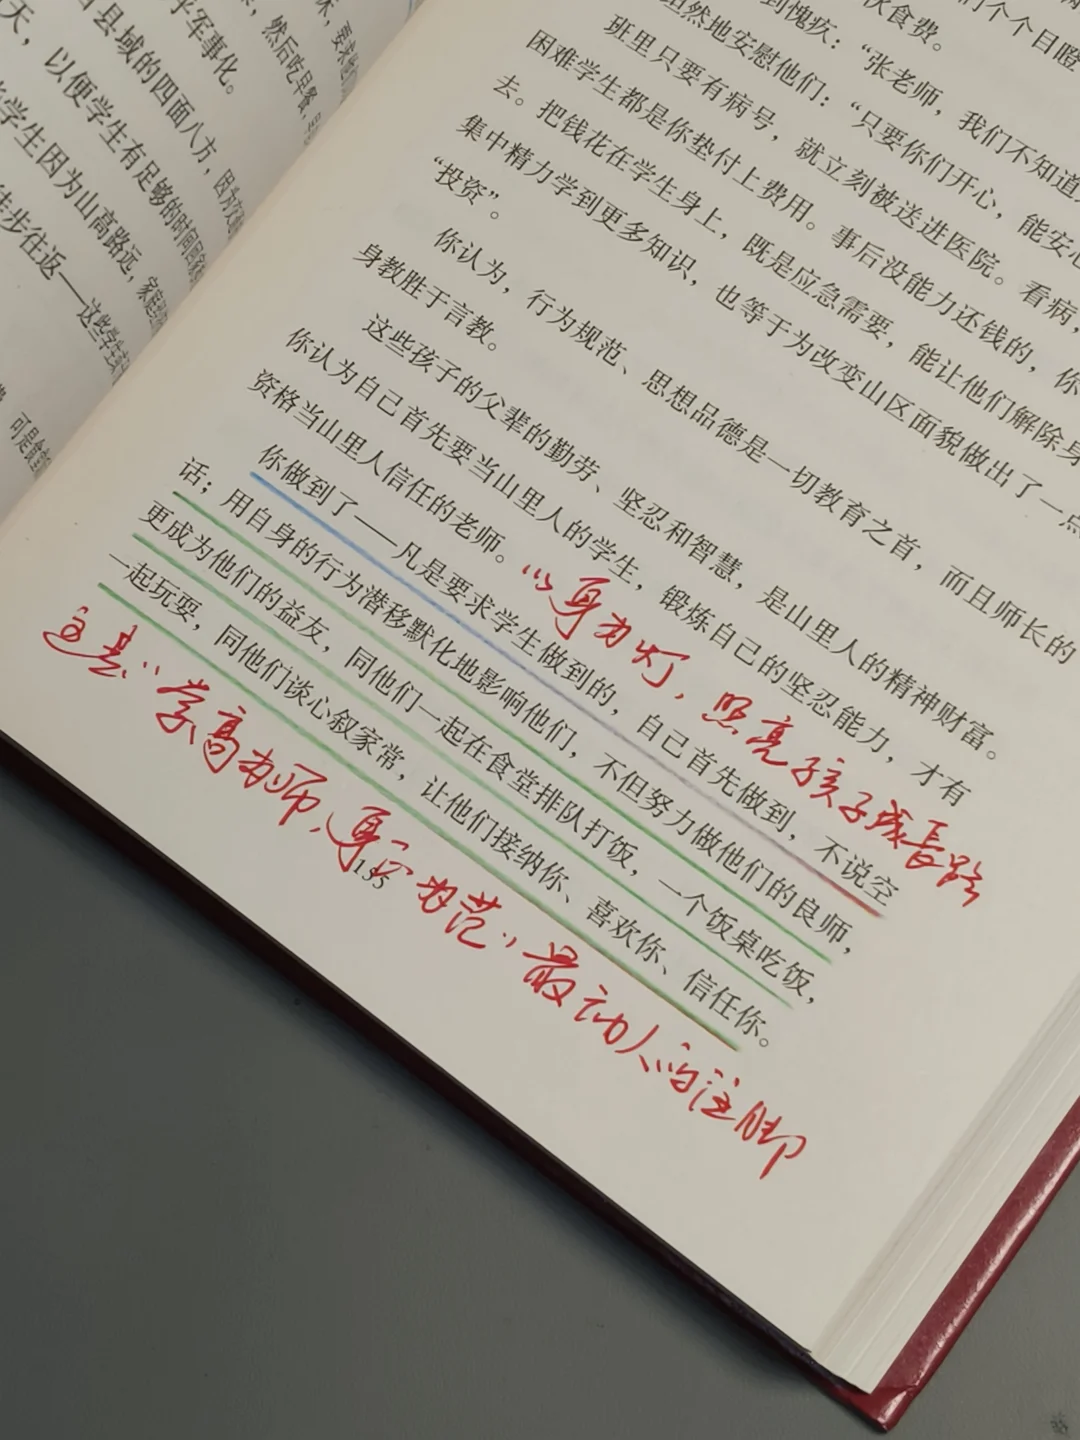 床，要求他们
然后吃早餐，
乎军事化。
县域的四面八方，因为交通
天，以便学生有足够的时间回家
学生因为山高路远，家庭
徒步往返——这些学生
可是
们个个目瞪
伙食费。
到愧疚：“张老师，我们不知道
坦然地安慰他们：“只要你们开心，能安心
班里只要有病号，就立刻被送进医院。看病，
困难学生都是你垫付上费用。事后没能力还钱的，你
去。把钱花在学生身上，既是应急需要，能让他们解除身
集中精力学到更多知识，也等于为改变山区面貌做出了一点
“投资”。
你认为，行为规范、思想品德是一切教育之首，而且师长的
身教胜于言教。
这些孩子的父辈的勤劳、坚忍和智慧，是山里人的精神财富。
你认为自己首先要当山里人的学生，锻炼自己的坚忍能力，才有
资格当山里人信任的老师。
“以身为灯，照亮孩子成长路
你做到了——凡是要求学生做到的，自己首先做到，不说空
话；用自身的行为潜移默化地影响他们，不但努力做他们的良师，
更成为他们的益友，同他们一起在食堂排队打饭，一个饭桌吃饭，
一起玩耍，同他们谈心叙家常，让他们接纳你、喜欢你、信任你。
这是“学高为师，身正为范”最动人的注脚
135